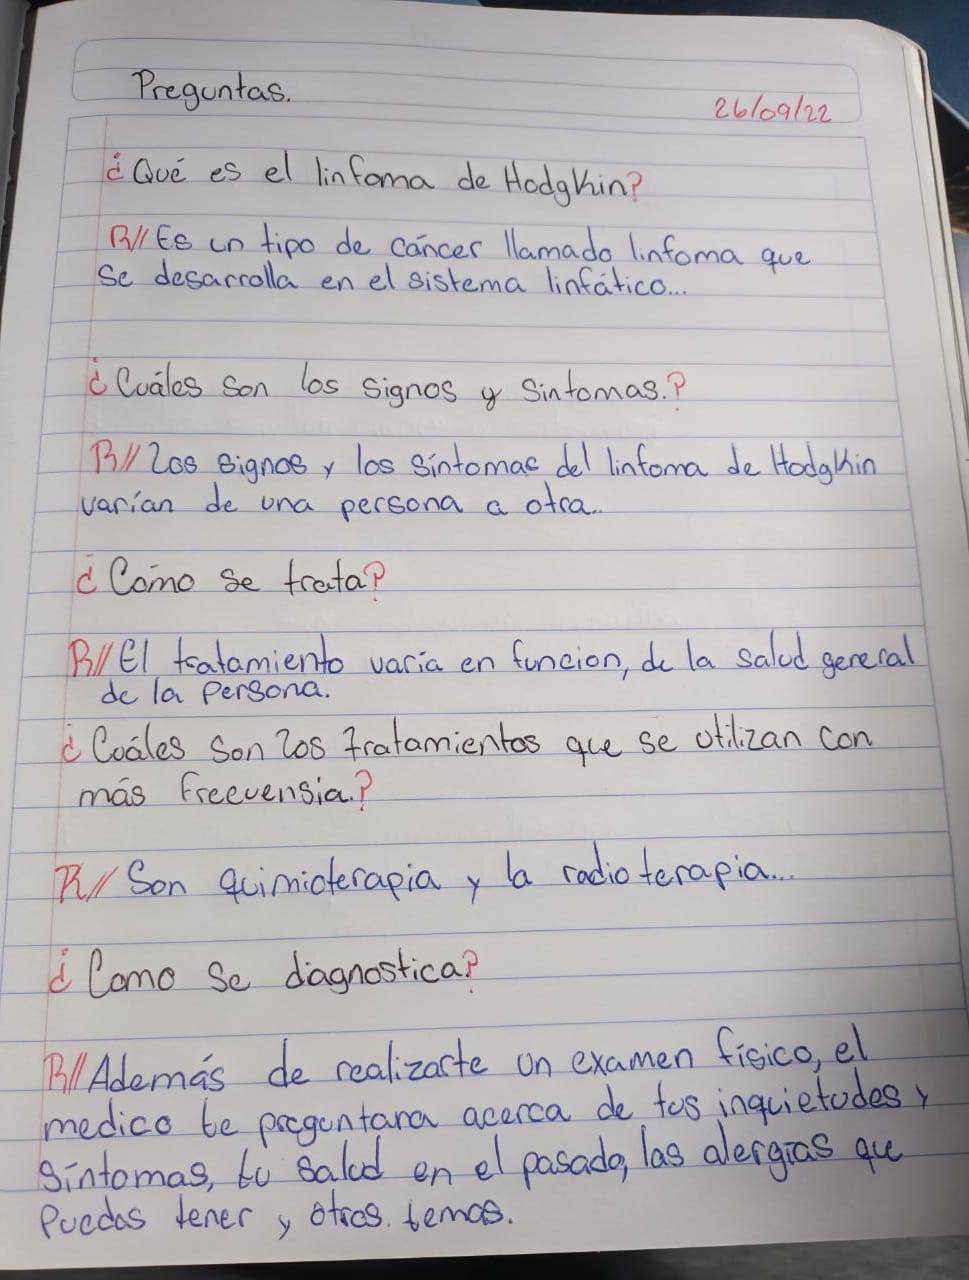 Preguntas.
26/09/22
¿Qué es el linfoma de Hodgkin?
R// Es un tipo de cáncer llamado linfoma que
se desarrolla en el sistema linfático...
¿Cuáles son los signos y Sintomas.?
R// Los signos y los síntomas del linfoma de Hodgkin
varían de una persona a otra..
¿Cómo se trata?
R// El tratamiento varia en funcion, de la salud general
de la persona.
¿Cuáles son los tratamientos que se utilizan con
más Frecuensia.?
R// Son quimioterapia y la radioterapia...
¿Como se diagnostica?
R// Además de realizarte un examen físico, el
medico te preguntara acerca de tus inquietudes y
síntomas, tu salud en el pasado, las alergias que
Puedas tener y otros. temas.